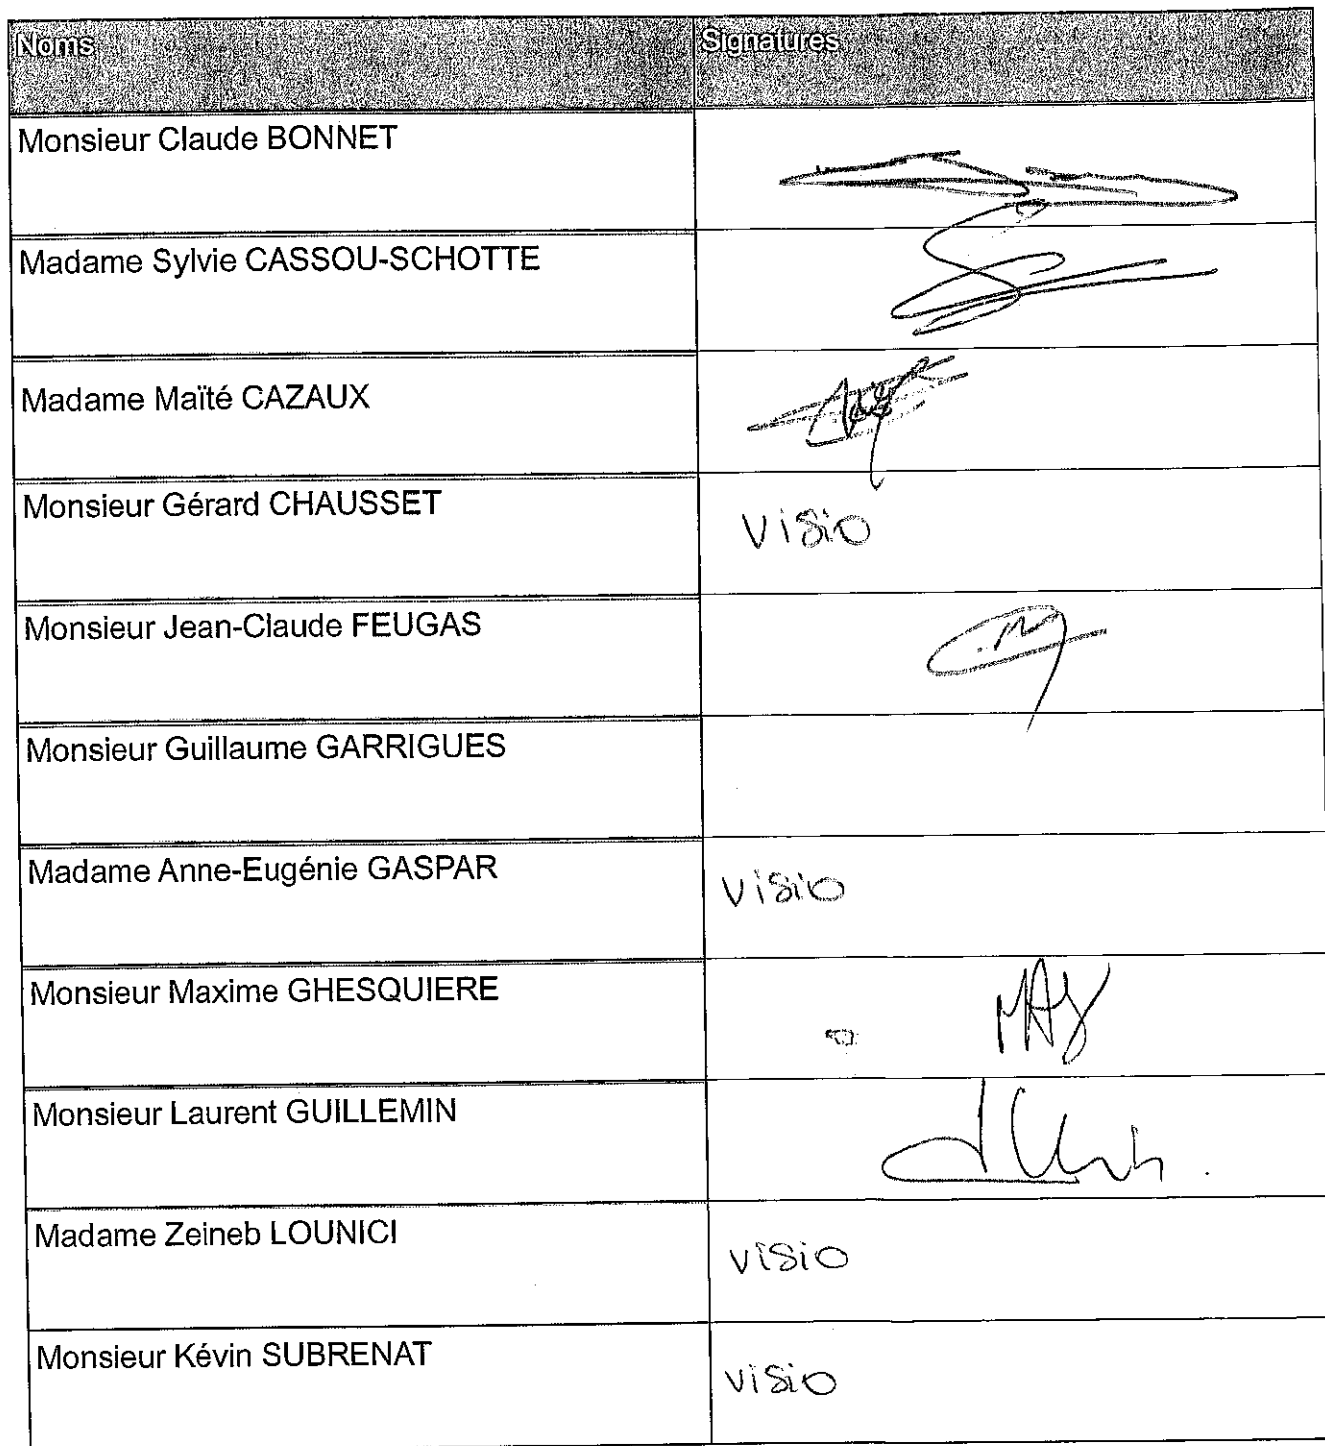 Noms
Signatures
Monsieur Claude BONNET
Madame Sylvie CASSOU-SCHOTTE
Madame Maïté CAZAUX
Monsieur Gérard CHAUSSET
Visio
Monsieur Jean-Claude FEUGAS
Monsieur Guillaume GARRIGUES
Madame Anne-Eugénie GASPAR
Visio
Monsieur Maxime GHESQUIERE
Monsieur Laurent GUILLEMIN
Madame Zeineb LOUNICI
Visio
Monsieur Kévin SUBRENAT
Visio